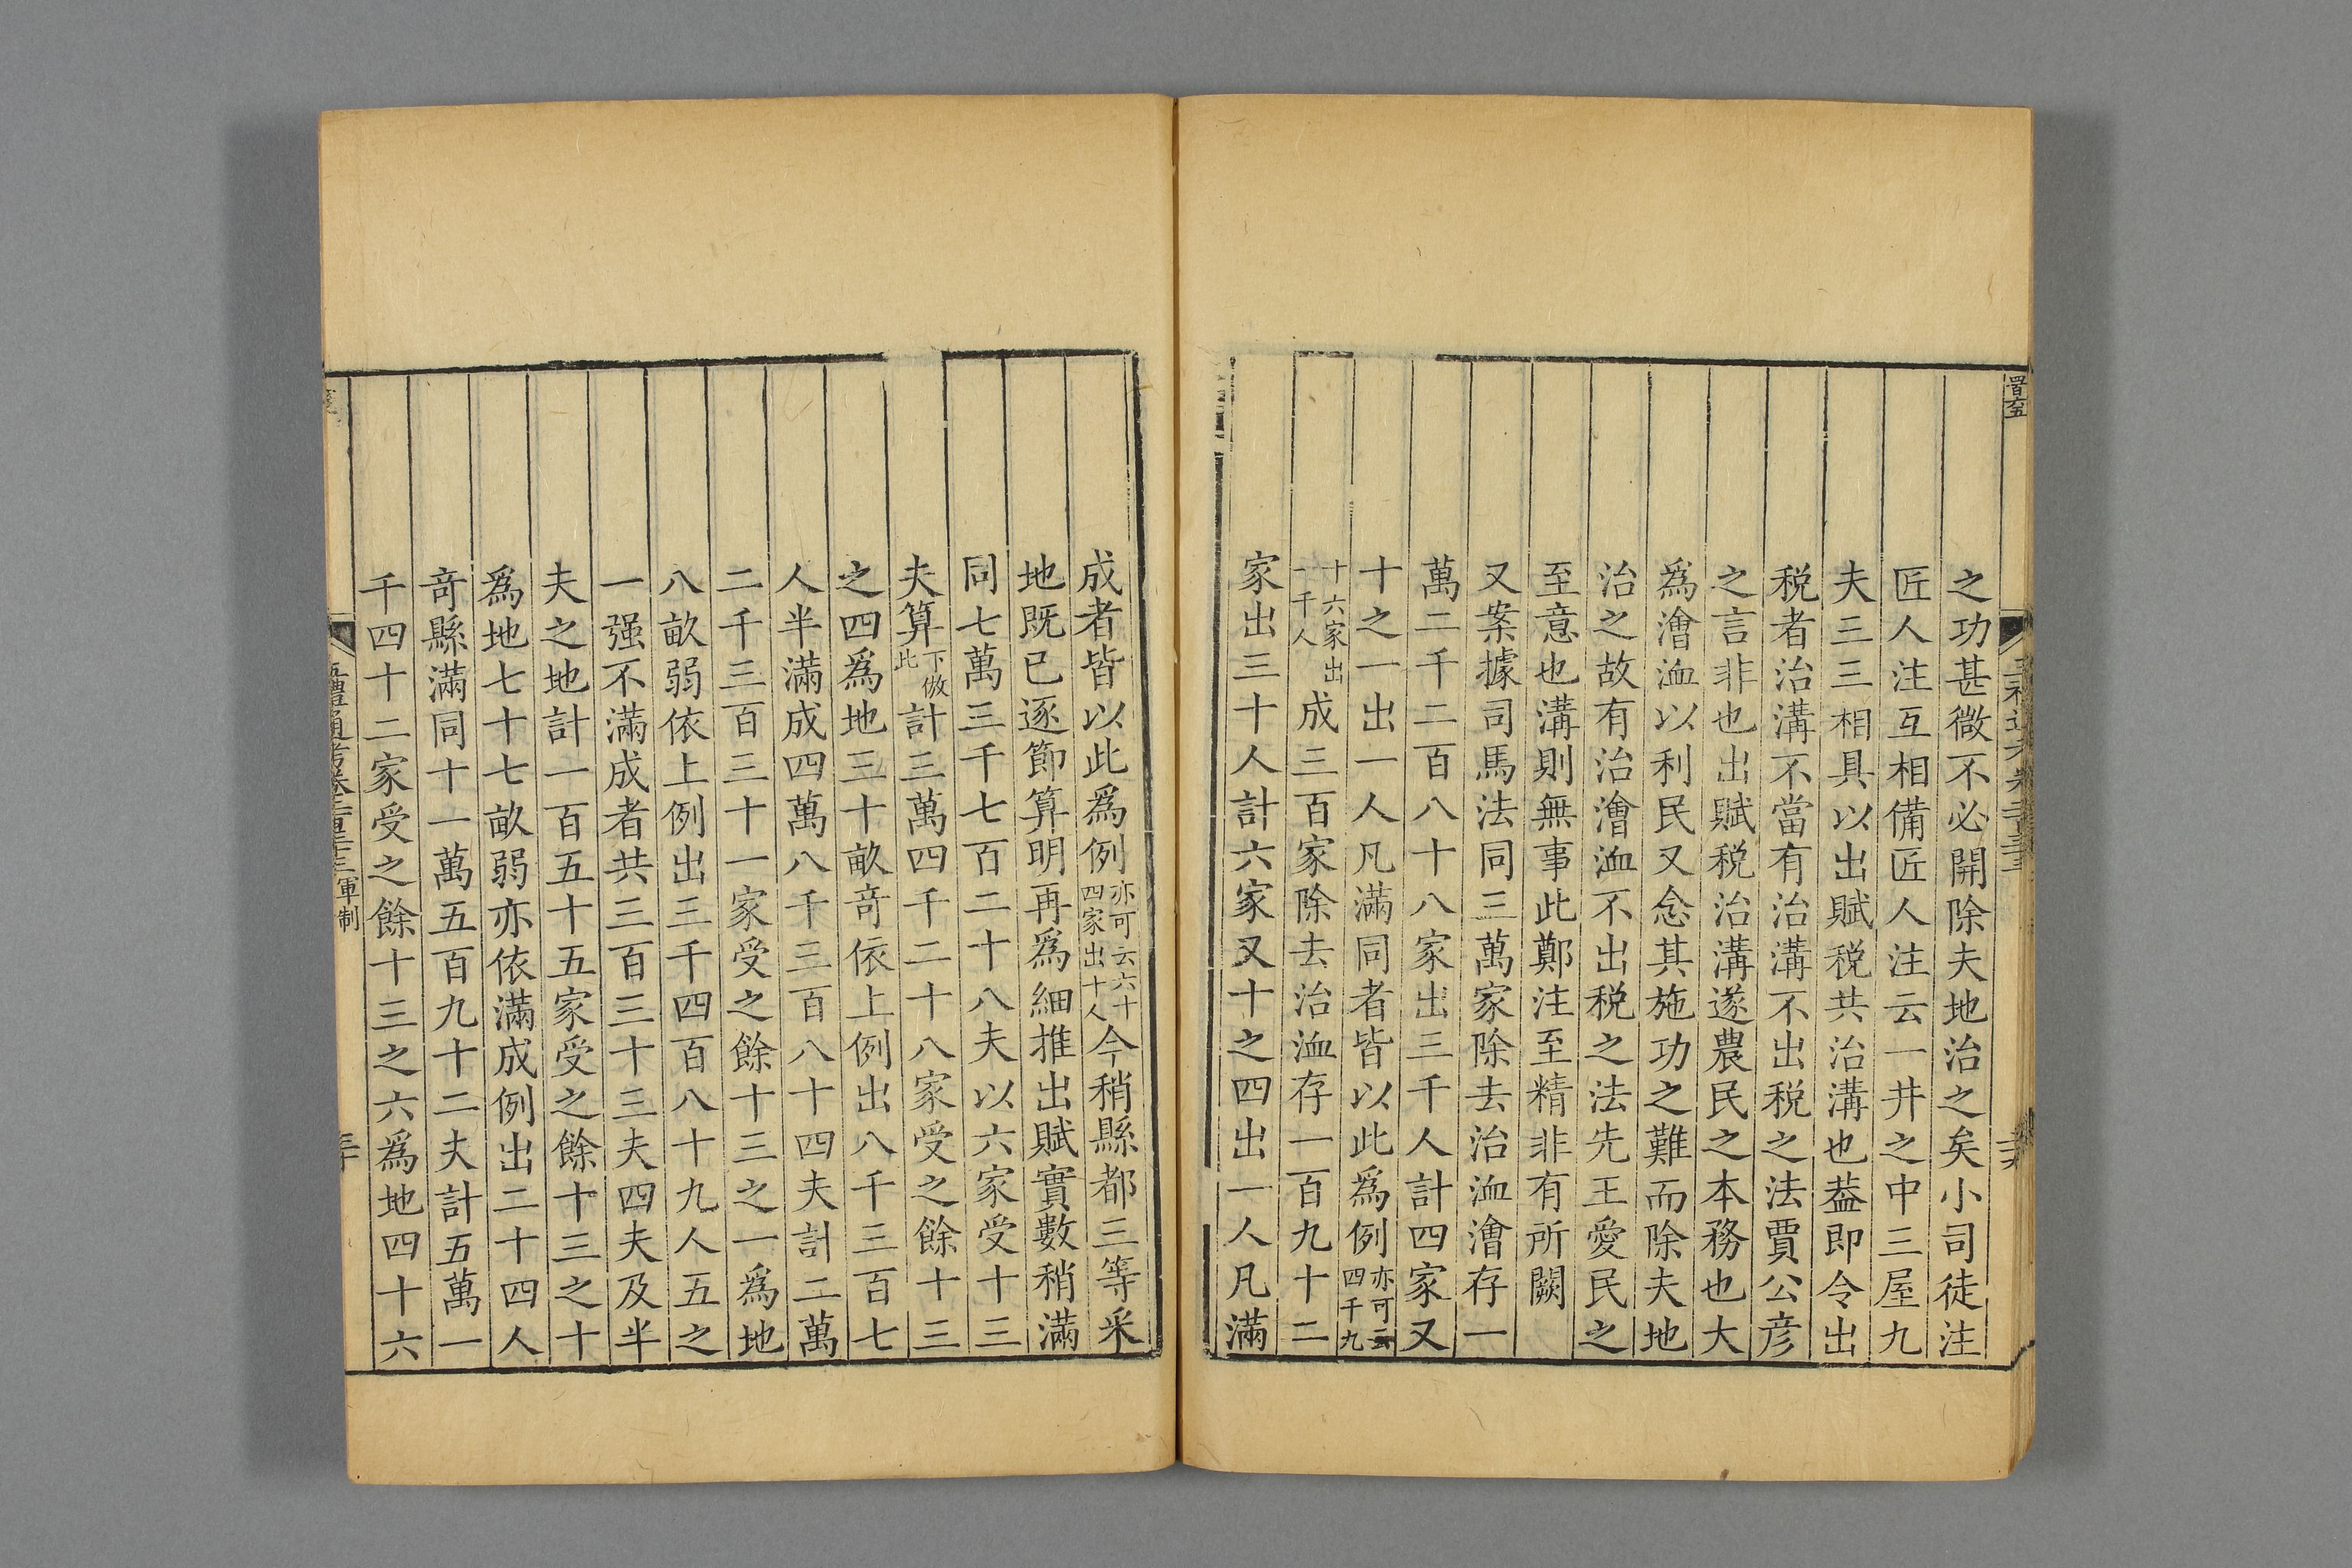 之功甚微不必開除夫地治之矣小司徒注
匠人注互相備匠人注云一井之中三屋九
夫三三相具以出賦税共治溝也葢即令出
税者治溝不當有治溝不出税之法賈公彦
之言非也出賦税治溝遂農民之本務也大
爲澮洫以利民又念其施功之難而除夫地
治之故有治澮洫不出税之法先王愛民之
至意也溝則無事此鄭注至精非有所闕
又案據司馬法同三萬家除去治洫澮存一
萬二千二百八十八家出三千人計四家又
十之一出一人凡滿同者皆以此爲例亦可云四千九
十六家出一千人成三百家除去治洫存一百九十二
家出三十人計六家又十之四出一人凡滿
成者皆以此爲例亦可云六十四家出十人今稍縣都三等采
地既已逐節算明再爲細推出賦實數稍滿
同七萬三千七百二十八夫以六家受十三
夫算下倣此計三萬四千二十八家受之餘十三
之四爲地三十畝竒依上例出八千三百七
人半滿成四萬八千三百八十四夫計二萬
二千三百三十一家受之餘十三之一爲地
八畝弱依上例出三千四百八十九人五之
一强不滿成者共三百三十三夫四夫及半
夫之地計一百五十五家受之餘十三之十
爲地七十七畝弱亦依滿成例出二十四人
竒縣滿同十一萬五百九十二夫計五萬一
千四十二家受之餘十三之六爲地四十六
五禮通考卷二百三十三 軍制
三十